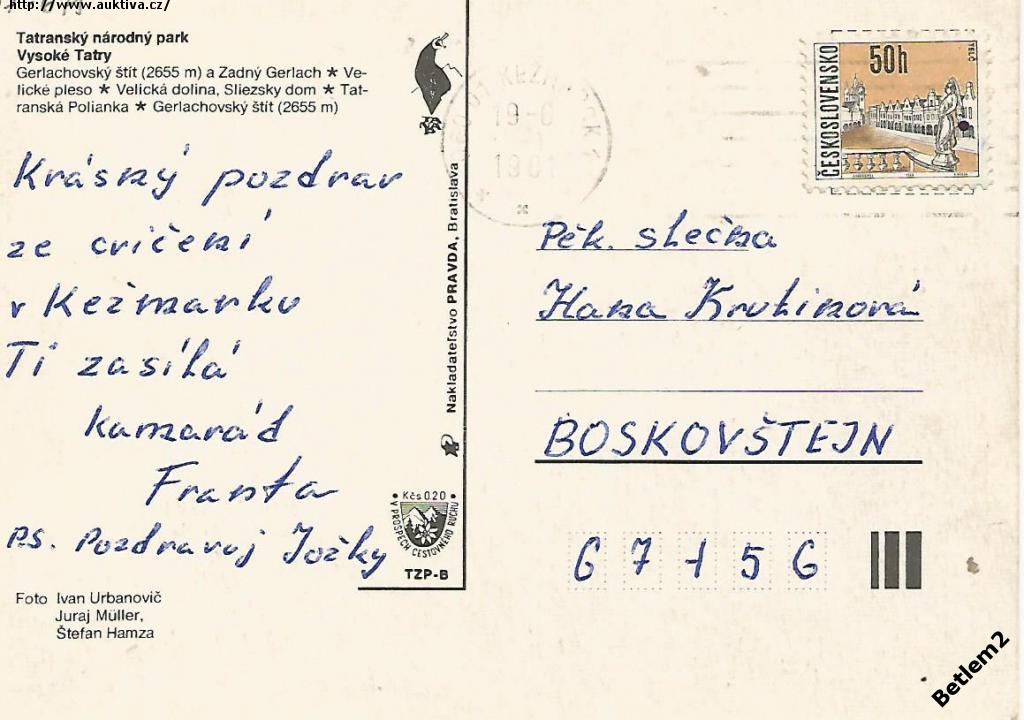 http://www.auktiva.cz/
Tatranský národný park
Vysoké Tatry
Gerlachovský štít (2655 m) a Zadný Gerlach ★ Ve-
lické pleso ★ Velická dolina, Sliezsky dom ★ Tat-
ranská Polianka ★ Gerlachovský štít (2655 m)
Krásný pozdrav
ze cvičení
v Kežmarku
Ti zasílá
kamarád
Franta
P.S. Pozdravuj Jožky
Foto Ivan Urbanovič
Juraj Müller,
Štefan Hamza
Nakladateľstvo PRAVDA, Bratislava
Kčs 0.20
V PROSPECH CESTOVNÉHO RUCHU
TZP-B
19-6
ČESKOSLOVENSKO
50h
TELČ
Pěk. slečna
Hana Krutinová
BOSKOVŠTEJN
67156
Betlem2